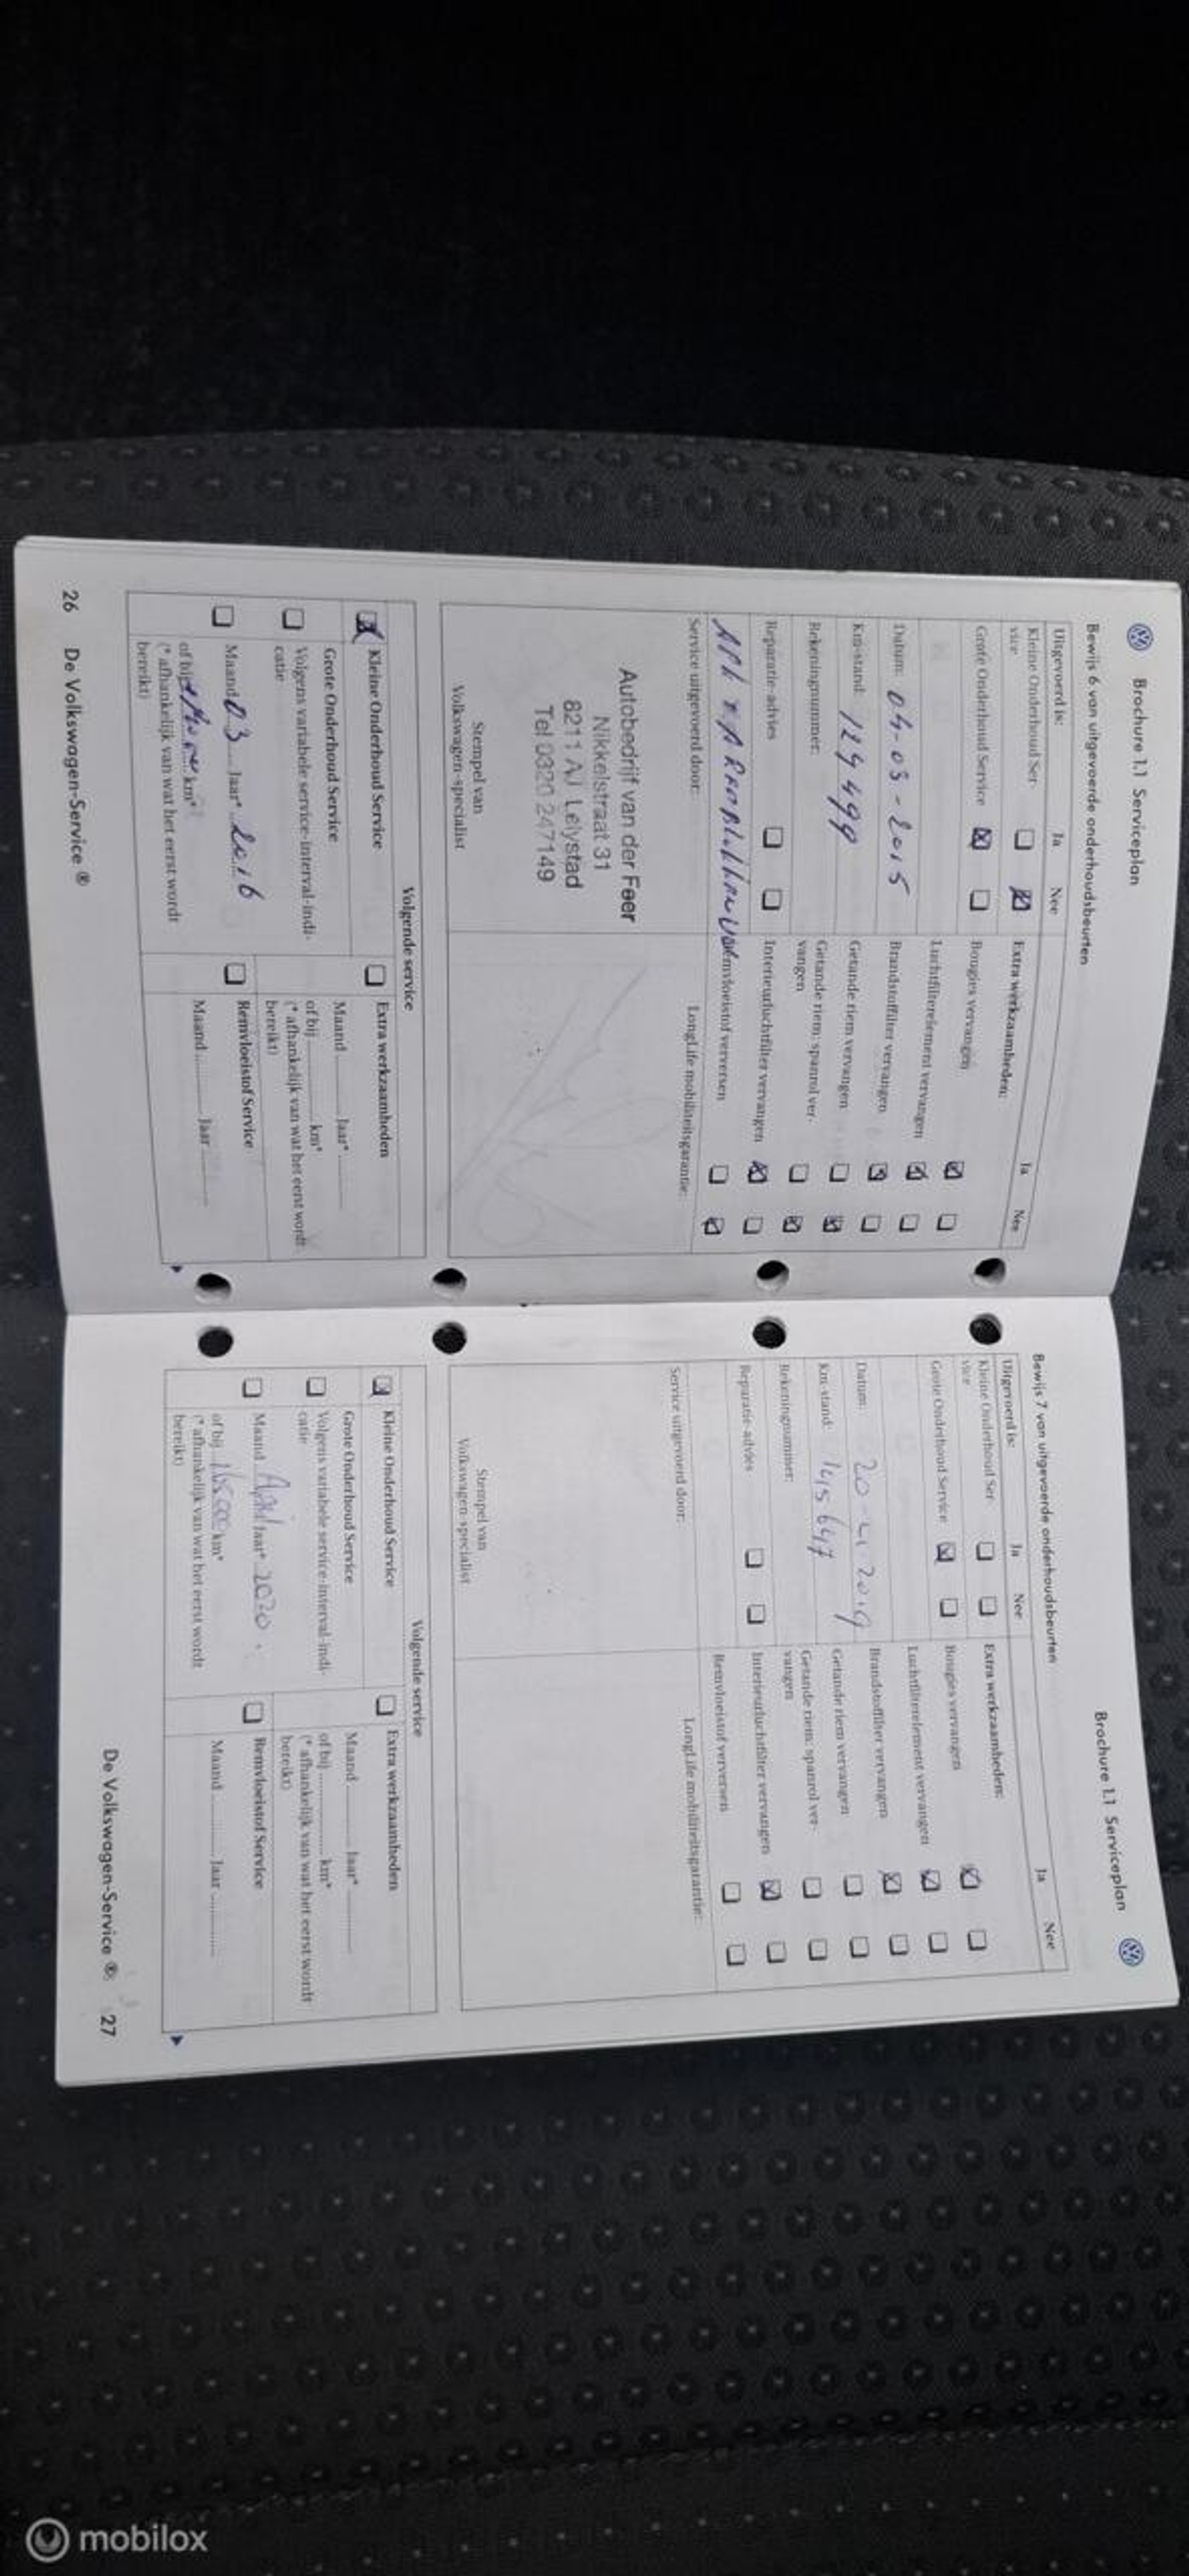 Brochure 1.1 Serviceplan
Bewijs 6 van uitgevoerde onderhoudsbeurten
Uitgevoerd is: Ja Nee
Kleine Onderhoud Ser-
vice
Grote Onderhoud Service
Datum: 04-03-2015
Km-stand: 129499
Rekeningnummer:
Reparatie-advies
Extra werkzaamheden: Ja Nee
Bougies vervangen
Luchtfilterelement vervangen
Brandstoffilter vervangen
Getande riem vervangen
Getande riem: spanrol ver-
vangen
Interieurluchtfilter vervangen
Remvloeistof verversen
Service uitgevoerd door:
LongLife mobiliteitsgarantie:
Autobedrijf van der Feer
Nikkelstraat 31
8211 AJ Lelystad
Tel 0320 247149
Stempel van
Volkswagen-specialist
Volgende service
Kleine Onderhoud Service
Grote Onderhoud Service
Volgens variabele service-interval-indi-
catie
Maand 03 Jaar* 2016
of bij km*
(* afhankelijk van wat het eerst wordt
bereikt)
Extra werkzaamheden
Maand Jaar*
of bij km*
(* afhankelijk van wat het eerst wordt
bereikt)
Remvloeistof Service
Maand Jaar
26 De Volkswagen-Service ®
Brochure 1.1 Serviceplan
Bewijs 7 van uitgevoerde onderhoudsbeurten
Uitgevoerd is: Ja Nee
Kleine Onderhoud Ser-
vice
Grote Onderhoud Service
Datum: 20-4-2019
Km-stand: 145647
Rekeningnummer:
Reparatie-advies
Extra werkzaamheden: Ja Nee
Bougies vervangen
Luchtfilterelement vervangen
Brandstoffilter vervangen
Getande riem vervangen
Getande riem: spanrol ver-
vangen
Interieurluchtfilter vervangen
Remvloeistof verversen
Service uitgevoerd door:
LongLife mobiliteitsgarantie:
Stempel van
Volkswagen-specialist
Volgende service
Kleine Onderhoud Service
Grote Onderhoud Service
Volgens variabele service-interval-indi-
catie
Maand April Jaar* 2020
of bij km*
(* afhankelijk van wat het eerst wordt
bereikt)
Extra werkzaamheden
Maand Jaar*
of bij km*
(* afhankelijk van wat het eerst wordt
bereikt)
Remvloeistof Service
Maand Jaar
De Volkswagen-Service ® 27
mobilox